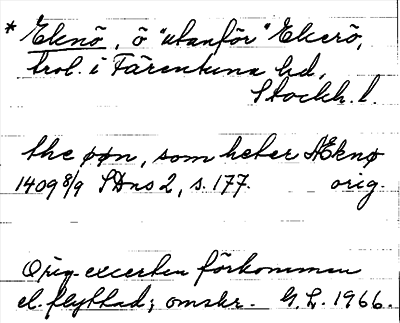 * Eknö, ö "utanför" Ekerö,
trol. i Färentuna hd,
Stockh. l.
the øøn, som heter Æknø
1409 8/9 SDns 2, s. 177. orig.
Orig.-excerpten förkommen
el. flyttad; omskr. G. L. 1966.